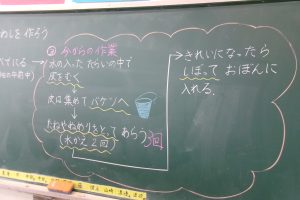 わしを作ろう
② 今からの作業
水の入った たらいの中で
皮をむく
皮は集めて バケツへ
たねやぬめりをとって あらう 3回
(水かえ2回)
→ きれいになったら
しぼって おぼんに
入れる.